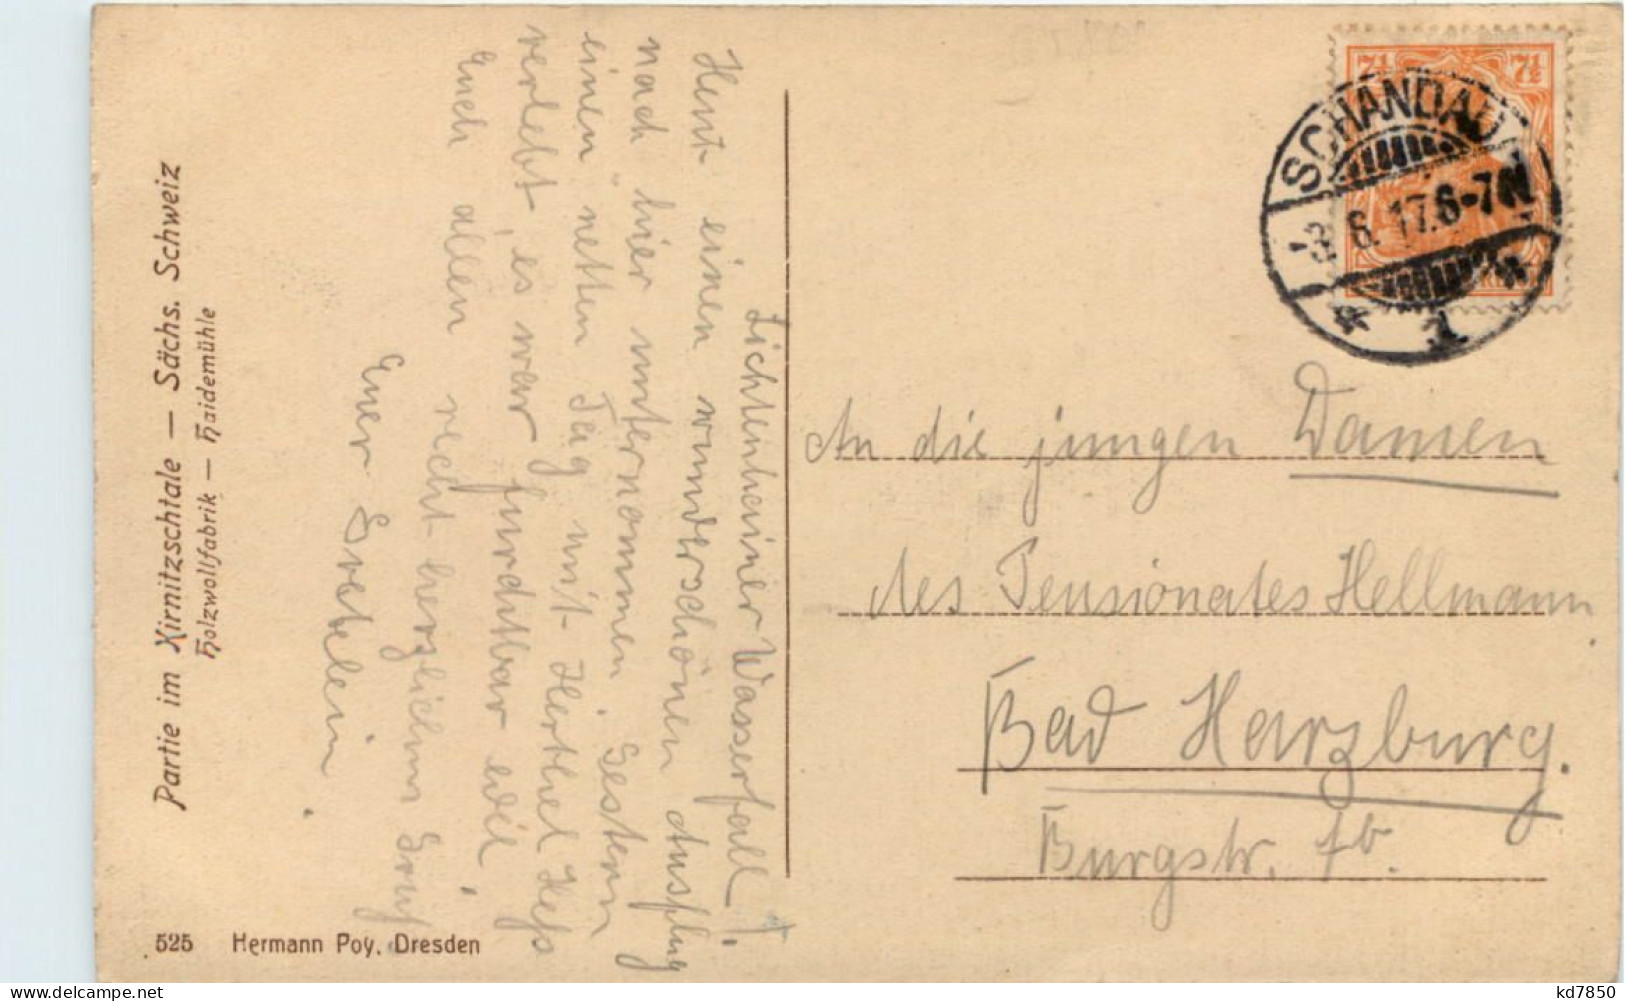 Partie im Kirnitzschtale — Sächs. Schweiz
Holzwollfabrik — Haidemühle
525 Hermann Poy, Dresden
Lichtenhainer Wasserfall!
Heut einen wunderschönen Ausflug
nach hier unternommen. Gestern
einen netten Tag mit Herthel
verlebt, es war furchtbar
Euch allen recht herzlichen Gruß
Euer Gretelein.
SCHANDAU
3.6.17.6-7N
* 1 *
7½
7½
An die jungen Damen
des Pensionates Hellmann
Bad Harzburg.
Burgstr. 7b.
www.delcampe.net
kd7850